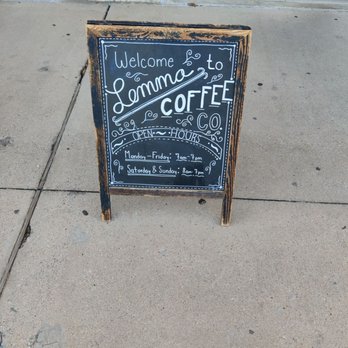 Welcome to
Lemma
COFFEE
CO.
OPEN HOUR
Monday - Friday: 7am-7pm
Saturday & Sunday: 8am-7pm